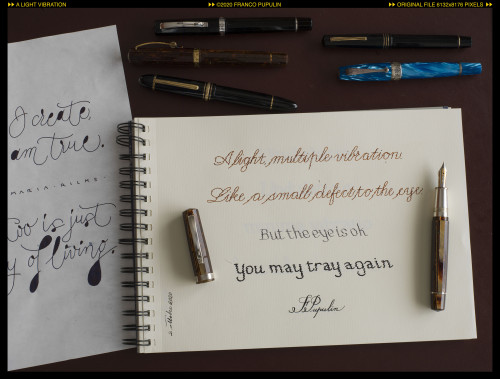 A LIGHT VIBRATION
©2020 FRANCO PUPULIN
ORIGINAL FILE 8132x6176 PIXELS
I create,
am true.
MARIA RILKE
too is just
y of living.
A light, multiple vibration.
Like a small defect to the eye
But the eye is ok
You may tray again
F. Pupulin